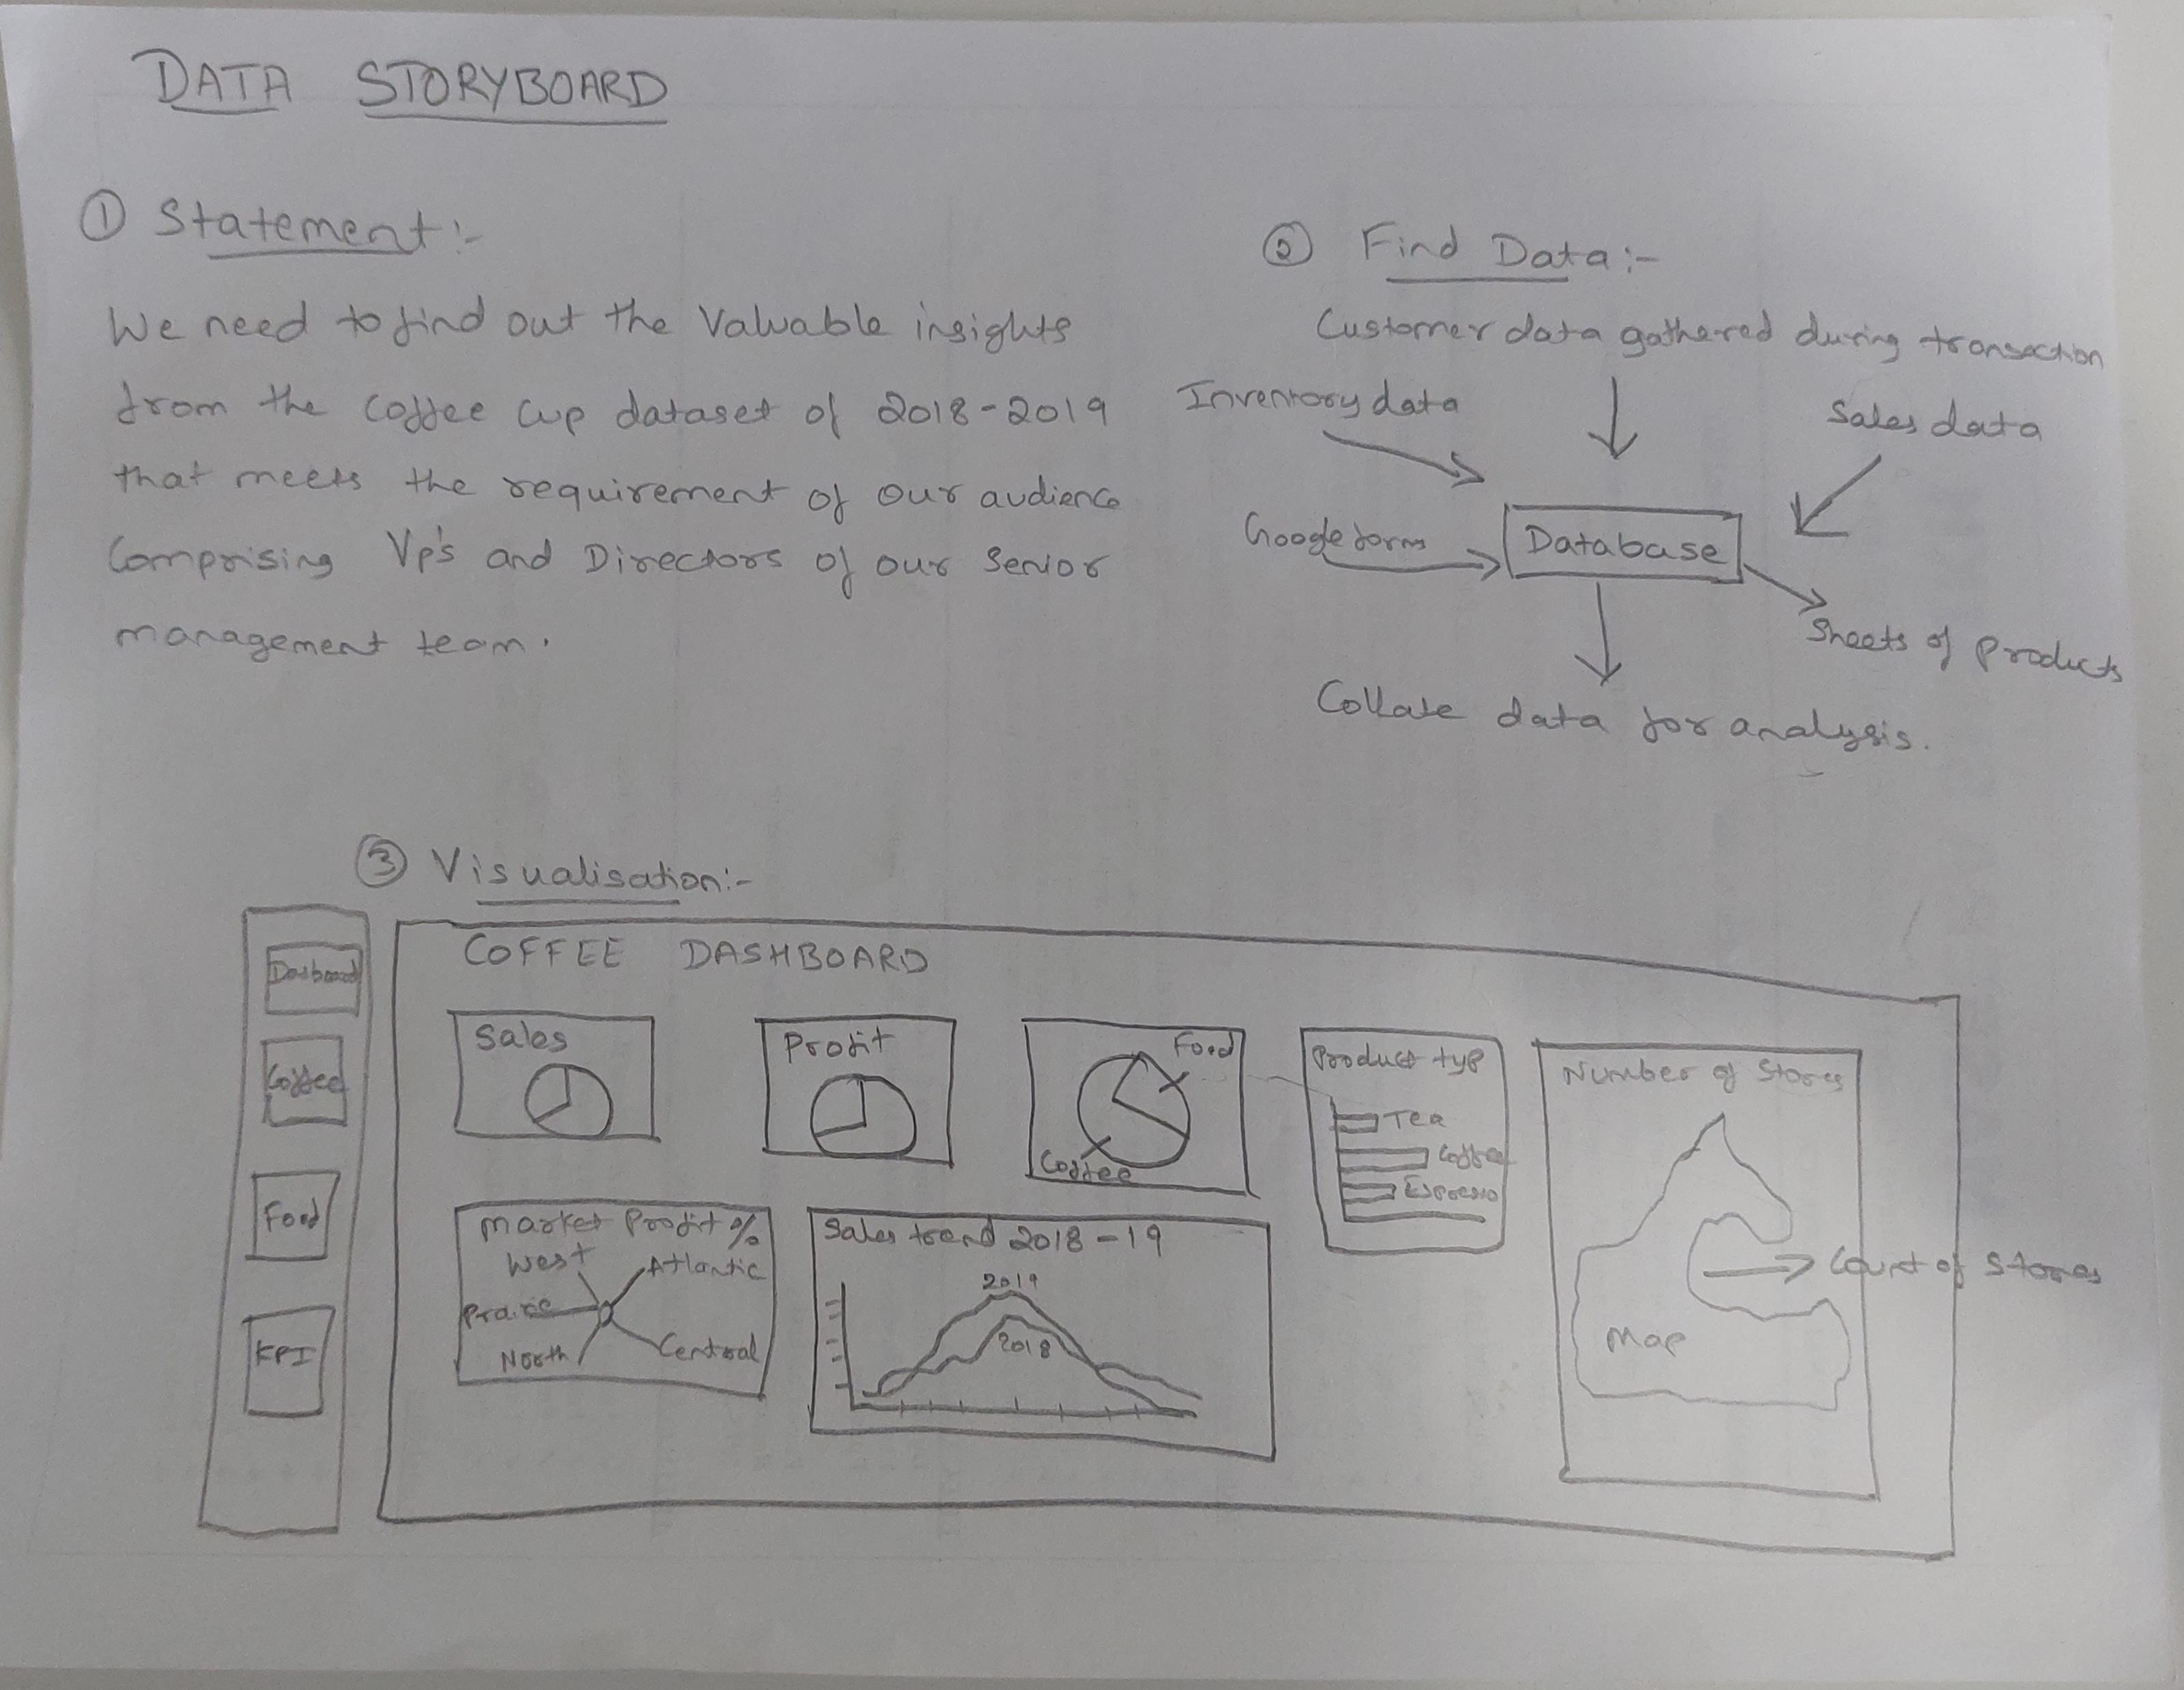 DATA STORYBOARD
① Statement:-
We need to find out the Valuable insights
from the Coffee Cup dataset of 2018-2019
that meets the requirement of our audience
Comprising Vp's and Directors of our Senior
management team.
② Find Data:-
Customer data gathered during transaction
Inventory data
Sales data
Google forms
Database
Sheets of Products
Collate data for analysis.
③ Visualisation:-
Dasboard
Coffee
Food
KPI
COFFEE DASHBOARD
Sales
Profit
Food
Coffee
Product typ
Tea
Coffee
Espresso
Number of Stores
Count of Stores
Map
Market Profit %
West
Atlantic
Praire
North
Central
Sales trend 2018-19
2019
2018